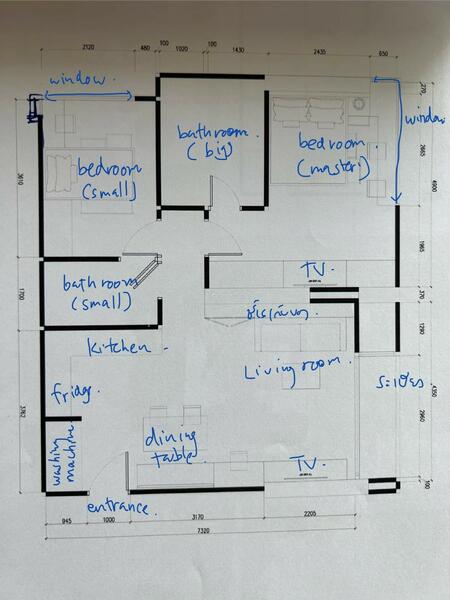 2120 480 100 1020 100 1430 2435 650
window.
270
window
bathroom.
(big)
bedroom
(master)
2665
4900
bedroom
(small)
3610
1965
bathroom
(small)
1700
TV
370
1290
kitchen
Living room.
ระเบียง
4350
fridge
3762
washing
machine
dining
table
2960
TV
100
entrance.
945 1000 3170 2205
7320